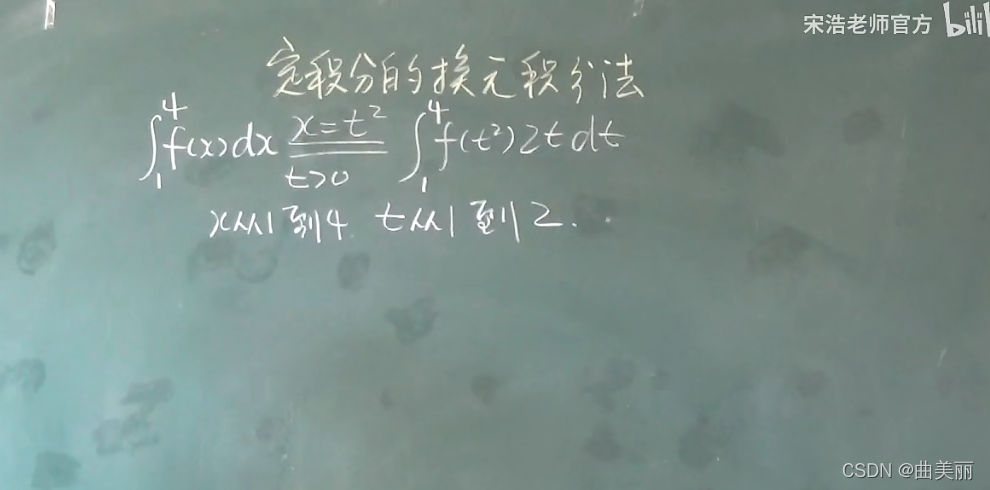 宋浩老师官方 bili
定积分的换元积分法
∫₁⁴ f(x)dx x=t² t>0 ∫₁⁴ f(t²)2t dt
x从1到4 t从1到2.
CSDN @曲美丽